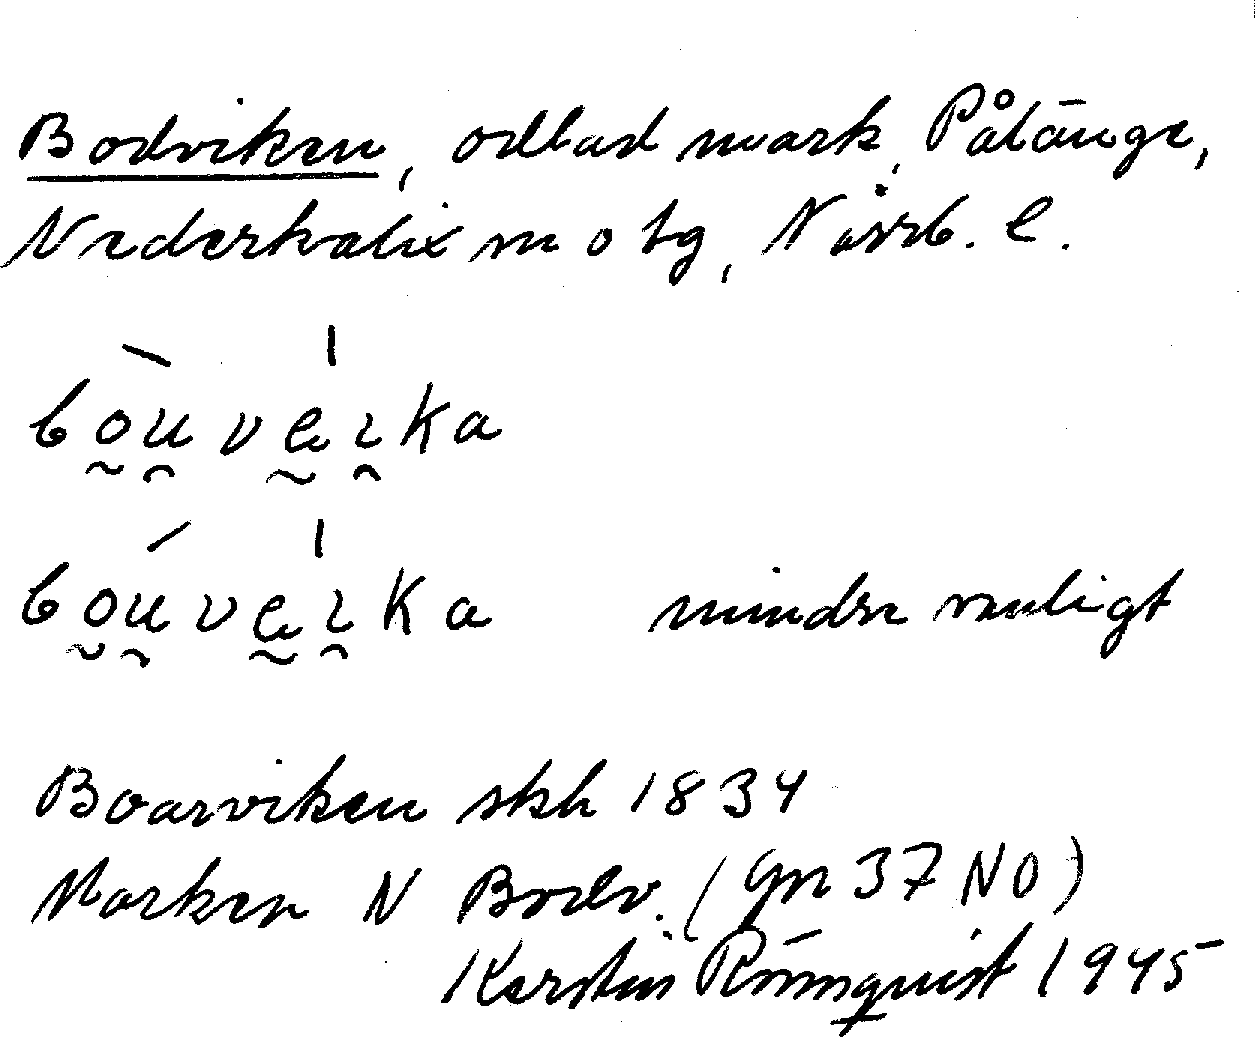 Bodviken, odlad mark, Pålänge,
Nederkalix sn o tg, Norrb. l.
bòu̯vei̯ka
bóu̯vei̯ka mindre vanligt
Boarviken skh 1834
Marken N Bodv. (gm 37 NO)
Kerstin Rönnquist 1945